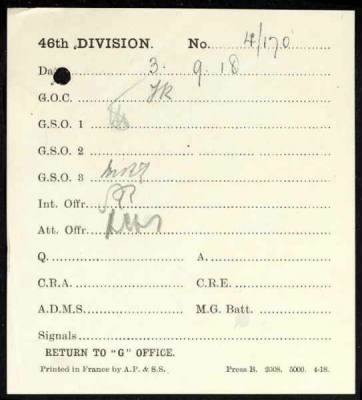 46th DIVISION. No. 4/170
Date 3. 9. 18
G.O.C.
G.S.O. 1
G.S.O. 2
G.S.O. 3
Int. Offr.
Att. Offr.
Q. A.
C.R.A. C.R.E.
A.D.M.S. M.G. Batt.
Signals
RETURN TO "G" OFFICE.
Printed in France by A.P. & S.S. Press B. 2508. 5000. 4-18.